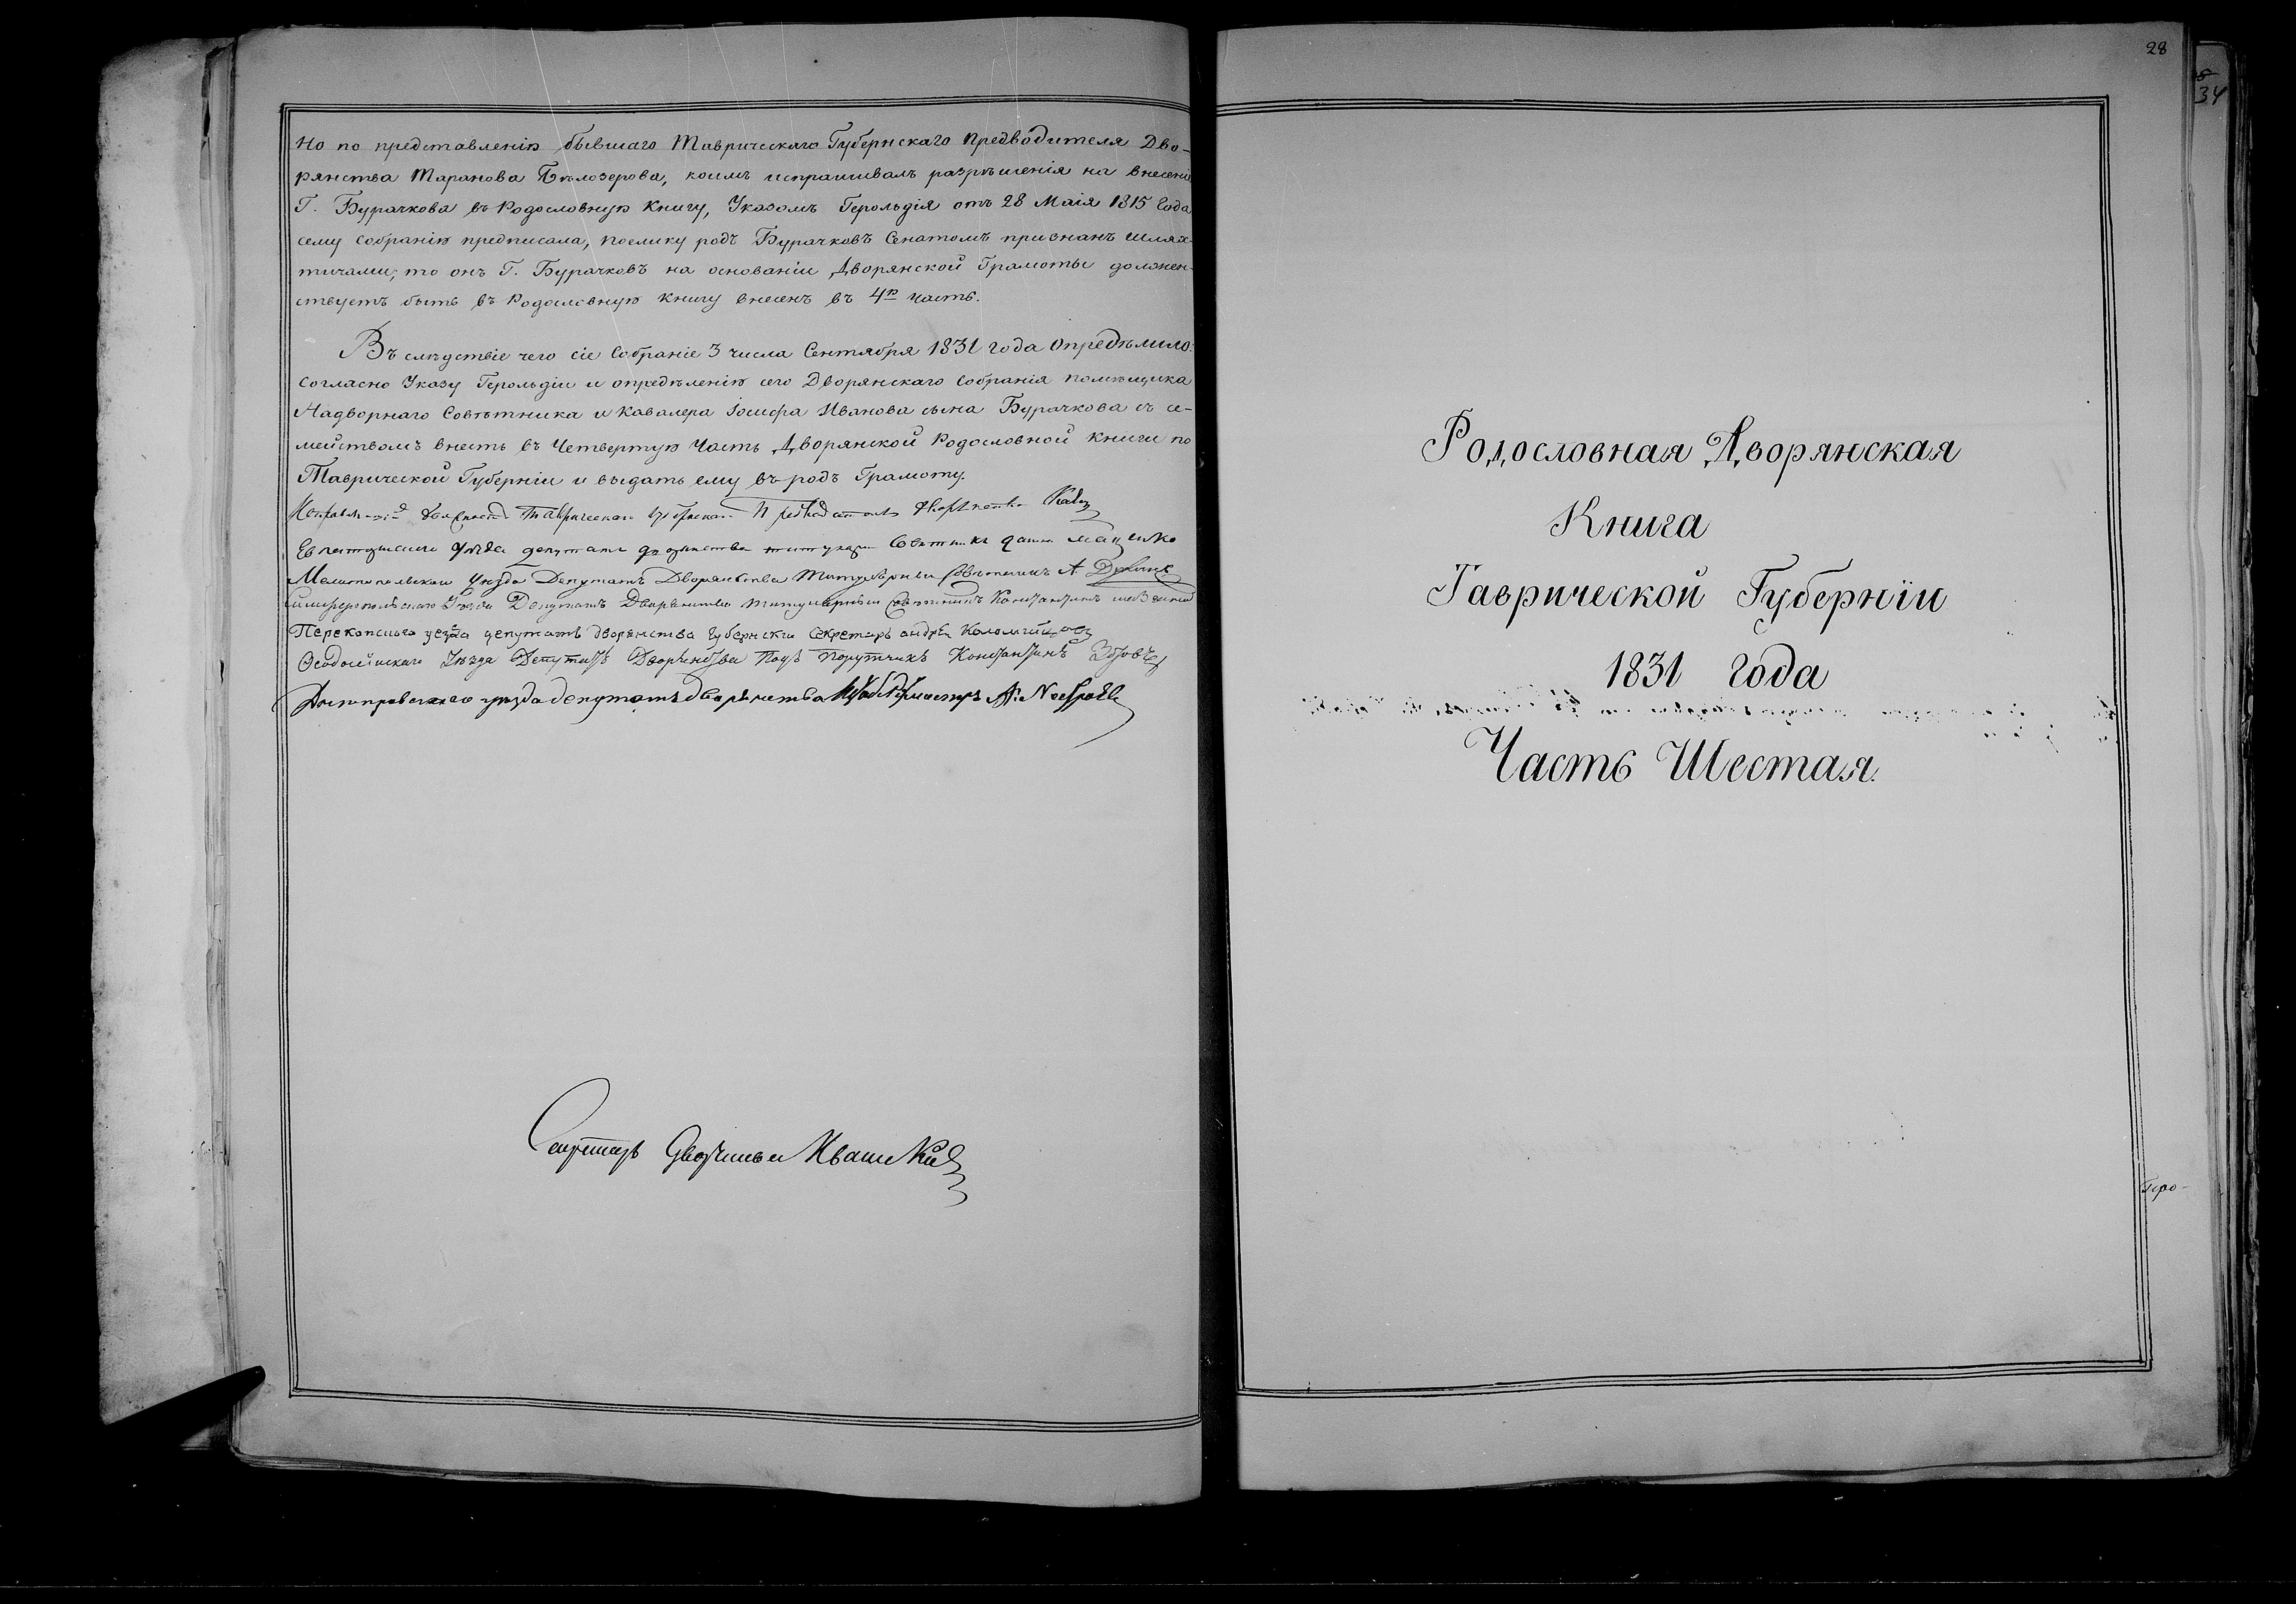 Но по представленію бывшаго Таврическаго Губернскаго Предводителя Дво-
рянства Таранова Бѣлозерова, коимъ испрашивалъ разрѣшенія на внесеніе
Г. Бурачкова въ Родословную Книгу, Указомъ Герольдія отъ 28 Маія 1815 Года
сему собранію предписала, поелику родъ Бурачковъ Сенатомъ признанъ шлях-
тичами, то онъ Г. Бурачковъ на основаніи Дворянской Грамоты должен-
ствуетъ быть въ Родословную книгу внесенъ въ 4ю часть.
Въ слѣдствіе чего сіе Собраніе 3 числа Сентября 1831 года Опредѣлило:
согласно Указу Герольдіи и опредѣленію сего Дворянскаго Собранія помѣщика
Надворнаго Совѣтника и Кавалера Іосифа Иванова сына Бурачкова съ се-
мействомъ внесть въ Четвертую Часть Дворянской Родословной книги по
Таврической Губерніи и выдать ему въ родъ Грамоту.
должность Таврическаго Губернскаго Предводителя Дворянства
уѣзда депутатъ дворянства Совѣтникъ Маценко
Мелитопольскаго Уѣзда Депутатъ Дворянства Титулярный Совѣтникъ А
Симферопольскаго Уѣзда Депутатъ Дворянства Титулярный Совѣтникъ Константинъ
Перекопскаго уезда депутатъ дворянства Губернскій Секретарь андрей
Ѳеодосійскаго Уѣзда Депутатъ Дворянства Подъ Порутчикъ Константинъ
Днепровскаго уезда депутатъ дворянства
Секретарь Дворянства
28
34
Родословная Дворянская
Книга
Таврической Губерніи
1831 года
Часть Шестая.
Геро-